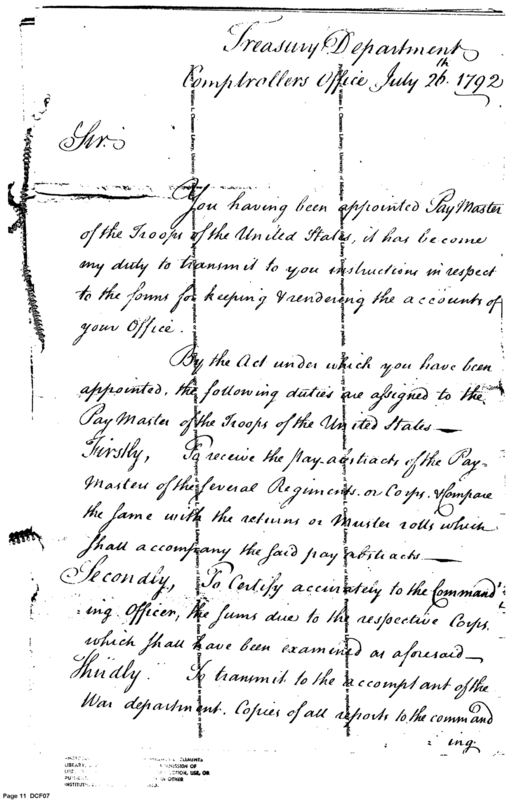 Treasury Department
Comptrollers Office July 26th. 1792
Sir.
You having been appointed Pay Master
of the Troops of the United States, it has become
my duty to transmit to you instructions in respect
to the forms for keeping & rendering the accounts of
your Office.
By the Act under which you have been
appointed, the following duties are assigned to the
Pay Master of the Troops of the United States—
Firstly, To receive the pay abstracts of the Pay-
Masters of the several Regiments or Corps, & compare
the same with the returns or Muster rolls which
shall accompany the said pay abstracts—
Secondly, To Certify accurately to the Command
:ing Officer, the sums due to the respective Corps,
which shall have been examined as aforesaid—
Thirdly. To transmit to the accomptant of the
War department. Copies of all reports to the command
:ing
Page 11 DCF07